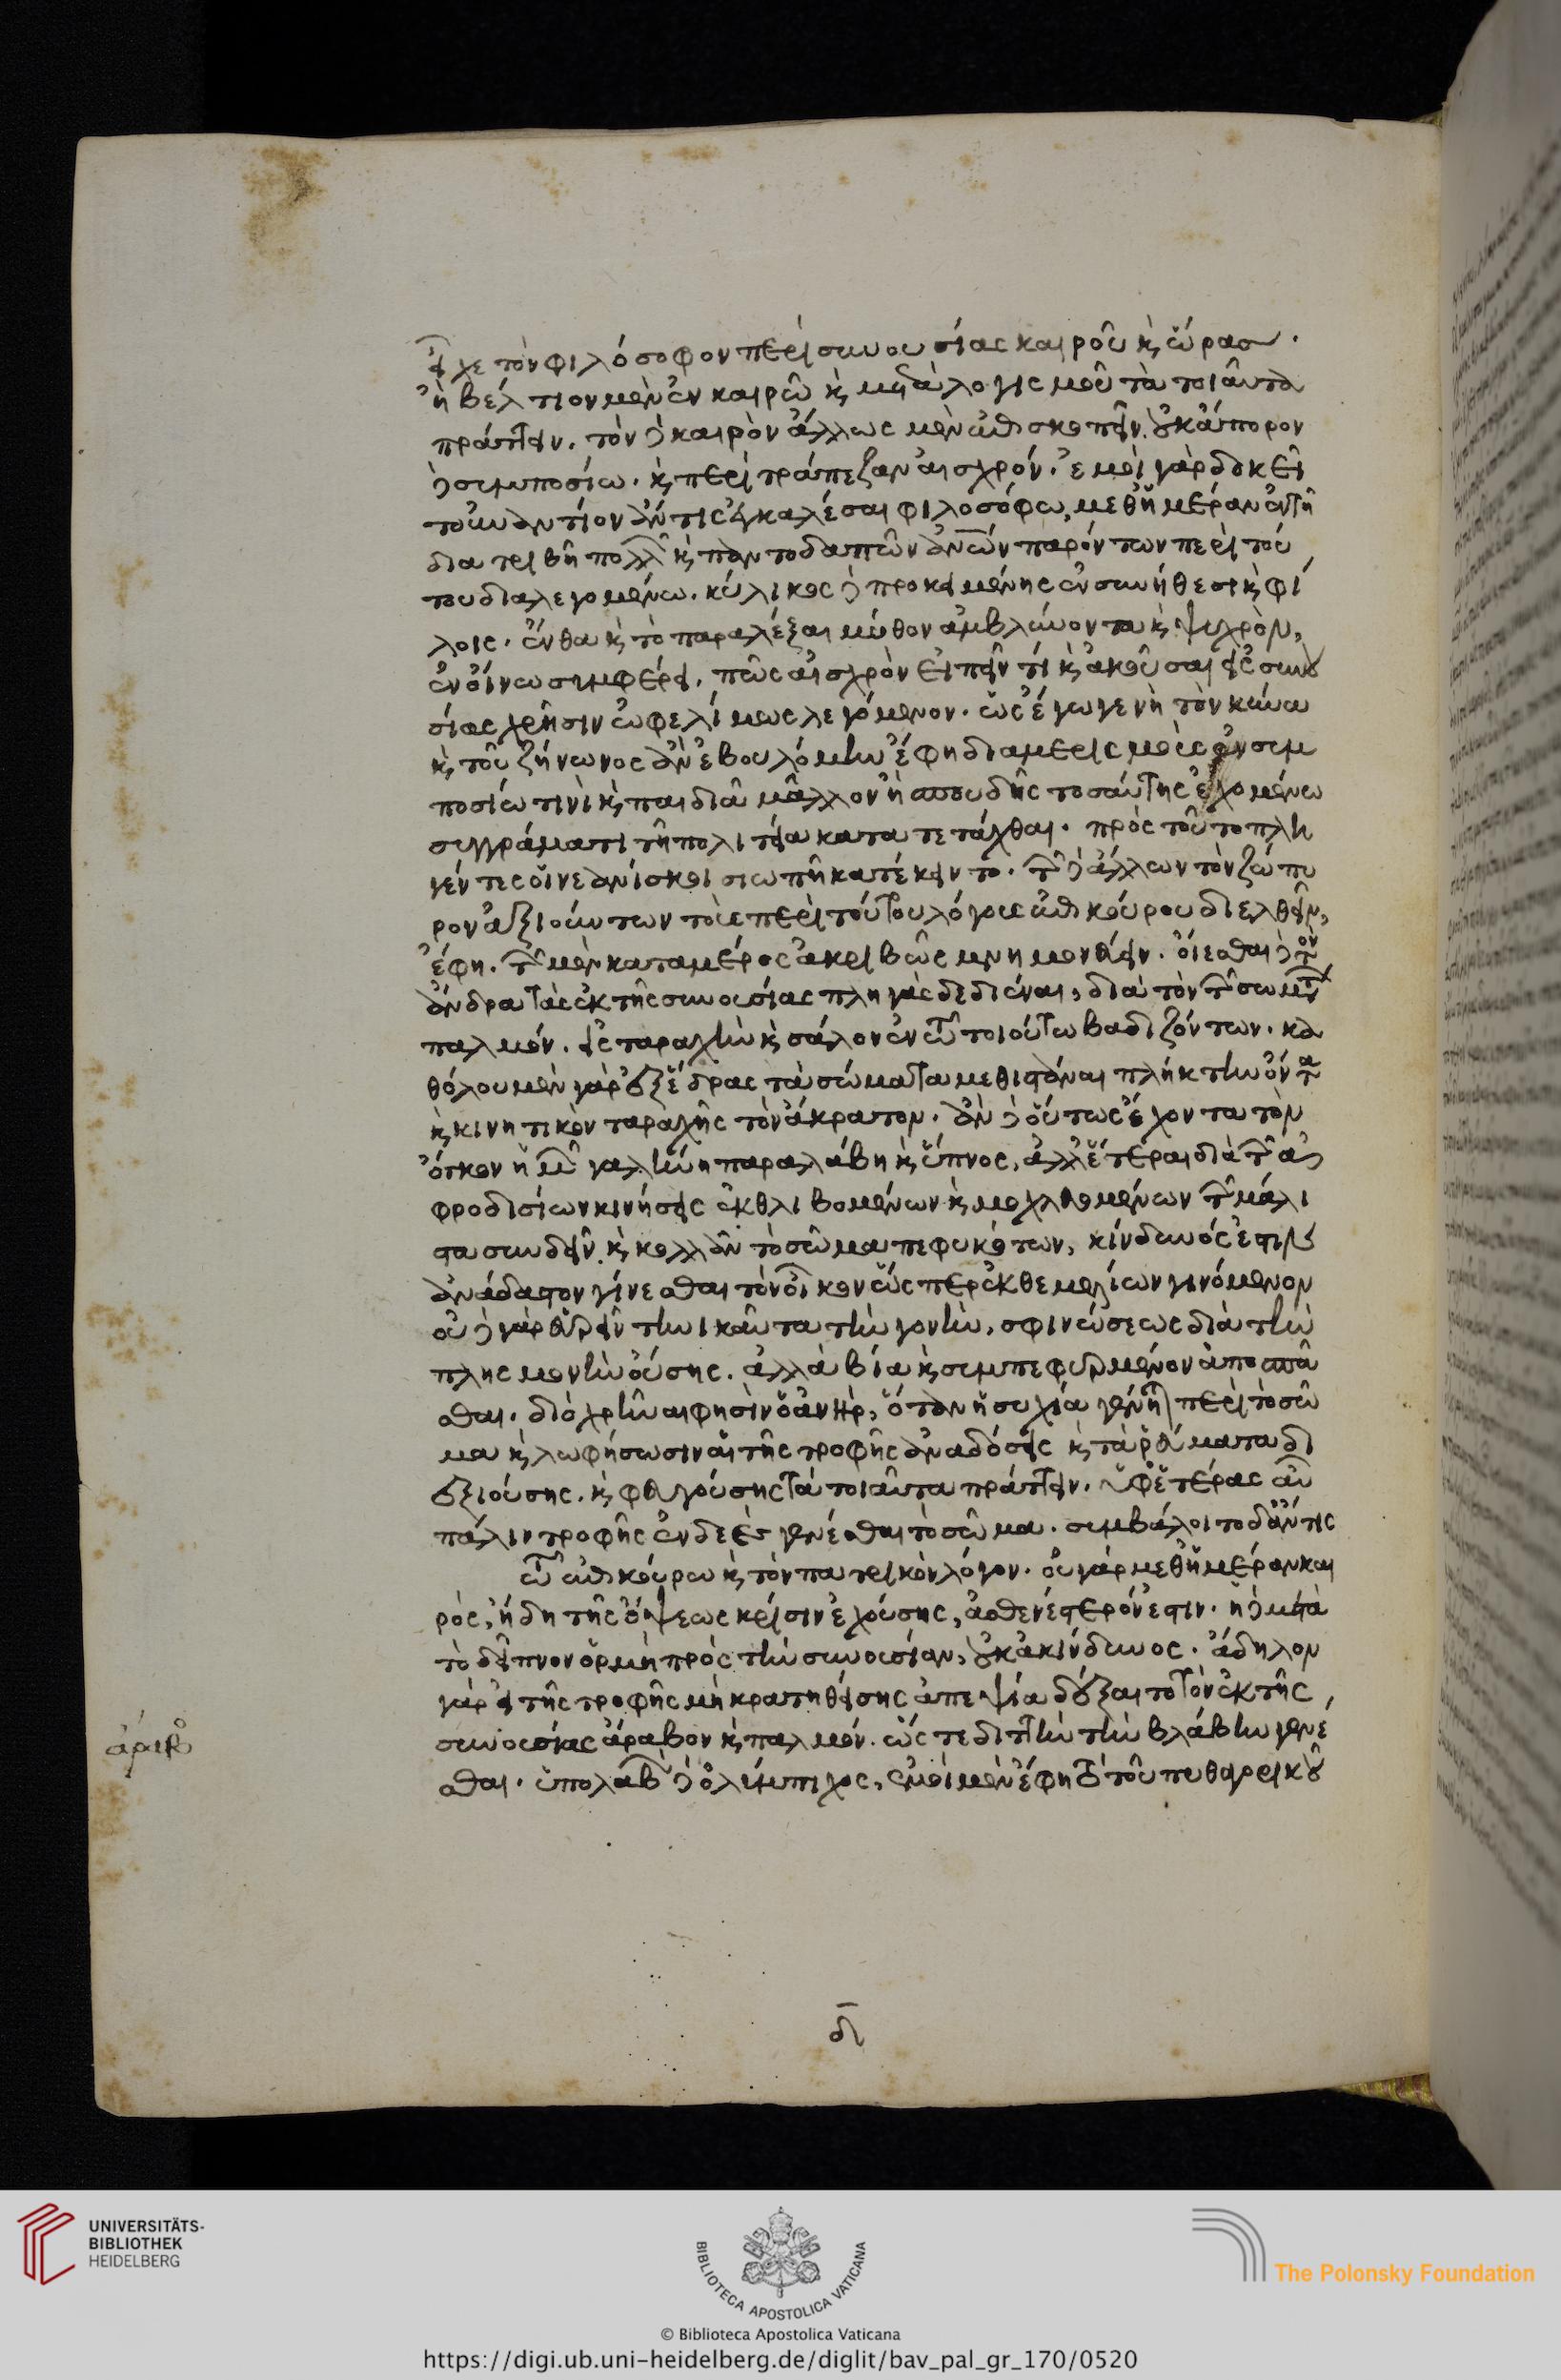 εἶχε τὸν φιλόσοφον περὶ συνουσίας καιροῦ κ, ὥρας.
ἢ βέλτιον μὲν ἐν καιρῶ κ, μετὰ λογισμοῦ τὰ τοιαῦτα
πράττειν. τὸν δὲ καιρὸν ἄλλως μὲν ἐπισκοπεῖν οὐκ ἄπορον
δὲ συμποσίω. κ, περὶ τράπεζαν αἰσχρόν. ἐμοὶ γὰρ δοκεῖ
τοὐναντίον ἄν τις ἐγκαλέσαι φιλοσόφω, μεθ ἡμέραν ἐν τῆ
διατριβῆ πολλῶν κ, παντοδαπῶν ἀνῶν παρόντων περὶ τού
του διαλεγομένω. κύλικος δὲ προκειμένης ἐν συνήθεσι κ, φί
λοις. ἔνθα κ, τὸ παραλέξαι μύθον ἀμβλύν οντα κ, ψυχρὸν,
ἐν οἴνω συμφέρει. πῶς αἰσχρὸν εἰπεῖν τί κ, ἀκοῦσαι εἰς συνου
σίας χρῆσιν ὠφελίμως λεγόμενον. ὡς ἔγωγε νὴ τὸν κύνα
κ, τοῦ ζήνωνος ἂν ἐβουλόμην ἔφη διαμερισμοὺς ἐν συμ
ποσίω τινὶ κ, παιδιᾶ μᾶλλον ἢ σπουδῆς τοσαύτης ἐχομένω
συγγράματι τῆ πολιτεία κατατετάχθαι. πρὸς τοῦτο πλη
γέντες οἱ νεανίσκοι σιωπῆ κατέκειντο. τῶν δὲ ἄλλων τὸν ζώπυ
ρον ἀξιούντων τοὺς περὶ τούτου λόγους ἐπικούρου διελθεῖν,
ἔφη. τῶν μὲν καταμέρος ἀκριβῶς μνημονεύειν. οἴεσθαι δὲ τὸν
ἄνδρα τὰς ἐκ τῆς συνουσίας πληγὰς δεδιέναι, διὰ τὸν τῶν σωμάτων
παλμόν. εἰς ταραχὴν κ, σάλον ἐν τῶ τοιούτω βαδιζόντων. κα
θόλου μὲν γὰρ ἐξ ἕδρας τὰ σώματα μεθιστάναι πλήκτην ὄντα
κ, κινητικὸν ταραχῆς τὸν ἄκρατον. ἂν δὲ οὕτως ἔχοντα τὸν
ὄγκον ἡμῶν γαλήνη παραλάβη κ, ὕπνος, ἀλλ ἕτεραι διὰ τῶν ἀ
φροδισίων κινήσεις ἐκθλιβομένων κ, μοχλευομένων τῶν μάλι
στα συνδεῖν κ, κολλᾶν τὸ σῶμα πεφυκότων, κίνδυνός ἐστιν
ἀνάδαστον γίνεσθαι τὸν οἶκον ὥσπερ ἐκ θεμελίων γινόμενον
οὐ δὲ γὰρ εὖ ῥεῖν τηνικαῦτα τὴν γονὴν, σφινώσεως διὰ τὴν
πλησμονὴν οὔσης. ἀλλὰ βία κ, συμπεφυρμένον ἀποσπᾶ
σθαι. διὸ χρῆναι φησὶν ὁ ἀνὴρ, ὅταν ἡσυχία γένηται περὶ τὸ σῶ
μα κ, λωφήσωσιν αἱ τῆς τροφῆς ἀναδόσεις κ, τὰ ῥεύματα δι
εξιούσης. κ, φευγούσης τὰ τοιαῦτα πράττειν. ὑφ ἑτέρας αὖ
πάλιν τροφῆς ἐνδεὲς γενέσθαι τὸ σῶμα. συμβάλοιτο δ ἄν τις
τῶ ἐπικούρω κ, τὸν πατρικὸν λόγον. ὁ γὰρ μεθ ἡμέραν και
ρὸς, ἤδη τῆς ὄψεως κρίσιν ἐχούσης, ἀσθενέστερόν ἐστιν. ἡ δὲ μετὰ
τὸ δεῖπνον ὁρμὴ πρὸς τὴν συνουσίαν, οὐκ ἀκίνδυνος. ἄδηλον
γὰρ εἰ τῆς τροφῆς μὴ κρατηθείσης ἀπεψία δέξαιτο τὸν ἐκ τῆς
ἀραβο
συνουσίας ἄραβον κ, παλμόν. ὥς τε διττὴν τὴν βλάβην γενέ
σθαι. ὑπολαβὼν δὲ ὀλύμπιχος, ἐμοὶ μὲν ἔφη τὸ τοῦ πυθαγορικοῦ
δ
UNIVERSITÄTS-
BIBLIOTHEK
HEIDELBERG
BIBLIOTECA APOSTOLICA VATICANA
The Polonsky Foundation
© Biblioteca Apostolica Vaticana
https://digi.ub.uni-heidelberg.de/diglit/bav_pal_gr_170/0520